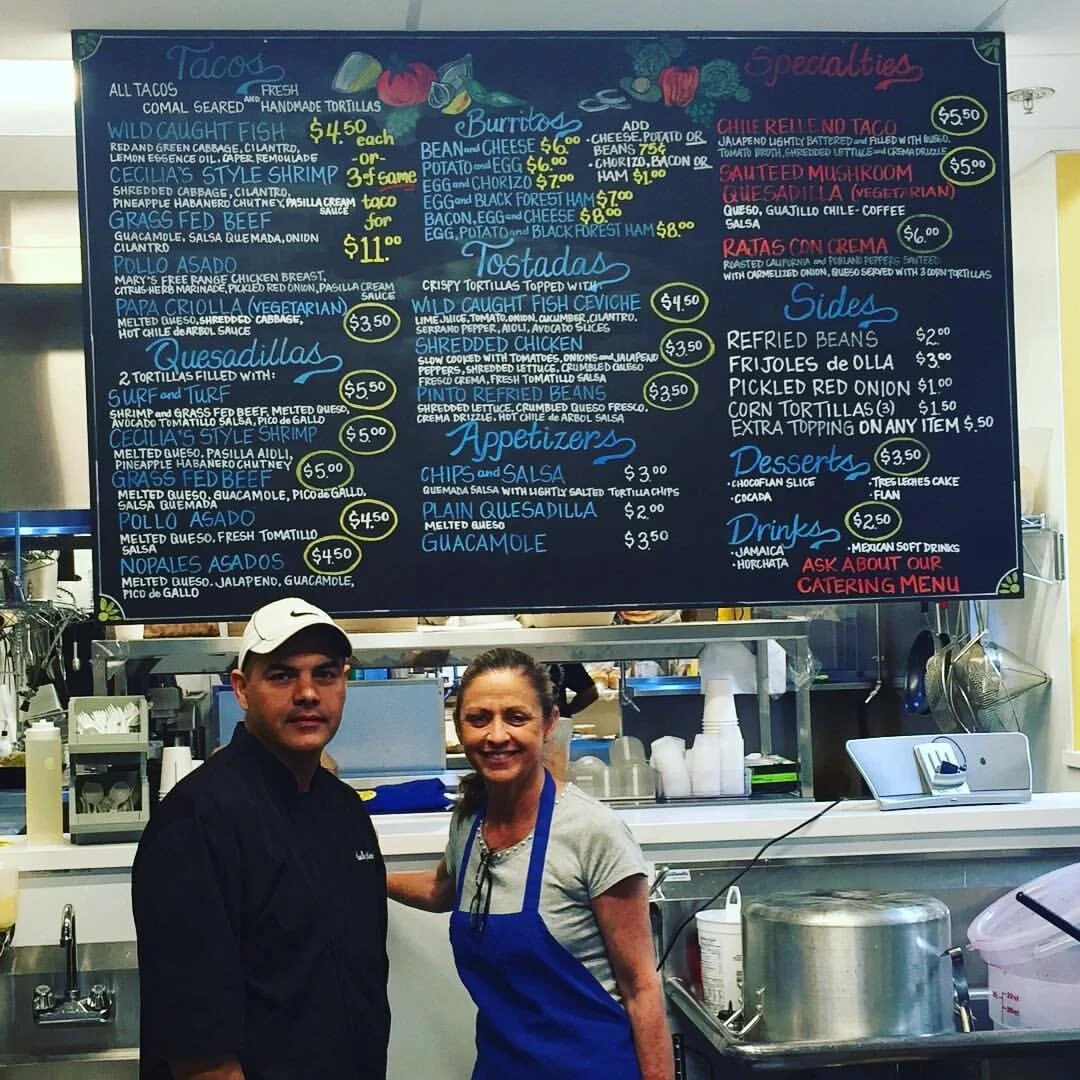 Tacos
ALL TACOS
COMAL SEARED AND FRESH HANDMADE TORTILLAS
WILD CAUGHT FISH $4.50 each
RED AND GREEN CABBAGE, CILANTRO,
LEMON ESSENCE OIL, CAPER REMOULADE
-or-
3 of same taco for $11.00
CECILIA'S STYLE SHRIMP
SHREDDED CABBAGE, CILANTRO,
PINEAPPLE HABANERO CHUTNEY, PASILLA CREAM SAUCE
GRASS FED BEEF
GUACAMOLE, SALSA QUEMADA, ONION
CILANTRO
POLLO ASADO
MARY'S FREE RANGE CHICKEN BREAST,
CITRUS-HERB MARINADE, PICKLED RED ONION, PASILLA CREAM SAUCE
PAPA CRIOLLA (VEGETARIAN) $3.50
MELTED QUESO, SHREDDED CABBAGE,
HOT CHILE de ARBOL SAUCE
Quesadillas
2 TORTILLAS FILLED WITH:
SURF and TURF $5.50
SHRIMP and GRASS FED BEEF, MELTED QUESO,
AVOCADO TOMATILLO SALSA, PICO de GALLO
CECILIA'S STYLE SHRIMP $5.00
MELTED QUESO, PASILLA AIOLI,
PINEAPPLE HABANERO CHUTNEY
GRASS FED BEEF $5.00
MELTED QUESO, GUACAMOLE, PICO de GALLO,
SALSA QUEMADA
POLLO ASADO $4.50
MELTED QUESO, FRESH TOMATILLO
SALSA
NOPALES AGADOS $4.50
MELTED QUESO, JALAPENO, GUACAMOLE,
PICO de GALLO
Burritos
BEAN and CHEESE $6.00
POTATO and EGG $6.00
EGG and CHORIZO $7.00
EGG and BLACK FOREST HAM $7.00
BACON, EGG and CHEESE $8.00
EGG, POTATO and BLACK FOREST HAM $8.00
ADD
• CHEESE, POTATO OR
BEANS 75¢
• CHORIZO, BACON OR
HAM $1.00
Tostadas
CRISPY TORTILLAS TOPPED WITH
WILD CAUGHT FISH CEVICHE $4.50
LIME JUICE, TOMATO, ONION, CUCUMBER, CILANTRO,
SERRANO PEPPER, AIOLI, AVOCADO SLICES
SHREDDED CHICKEN $3.50
SLOW COOKED WITH TOMATOES, ONIONS and JALAPENO
PEPPERS, SHREDDED LETTUCE, CRUMBLED QUESO
FRESCO CREMA, FRESH TOMATILLO SALSA
PINTO REFRIED BEANS $3.50
SHREDDED LETTUCE, CRUMBLED QUESO FRESCO,
CREMA DRIZZLE, HOT CHILE de ARBOL SALSA
Appetizers
CHIPS and SALSA $3.00
QUEMADA SALSA WITH LIGHTLY SALTED TORTILLA CHIPS
PLAIN QUESADILLA $2.00
MELTED QUESO
GUACAMOLE $3.50
Specialties
CHILE RELLENO TACO $5.50
JALAPENO LIGHTLY BATTERED and FILLED WITH QUESO,
TOMATO BROTH, SHREDDED LETTUCE and CREMA DRIZZLE
SAUTEED MUSHROOM $5.00
QUESADILLA (VEGETARIAN)
QUESO, GUAJILLO CHILE-COFFEE
SALSA
RAJAS CON CREMA $6.00
ROASTED CALIFORNIA and POBLANO PEPPERS SAUTEED
WITH CARMELIZED ONION, QUESO SERVED WITH 3 CORN TORTILLAS
Sides
REFRIED BEANS $2.00
FRIJOLES de OLLA $3.00
PICKLED RED ONION $1.00
CORN TORTILLAS (3) $1.50
EXTRA TOPPING ON ANY ITEM $.50
Desserts $3.50
• CHOCOFLAN SLICE
• TRES LECHES CAKE
• COCADA
• FLAN
Drinks $2.50
• JAMAICA
• MEXICAN SOFT DRINKS
• HORCHATA
ASK ABOUT OUR
CATERING MENU